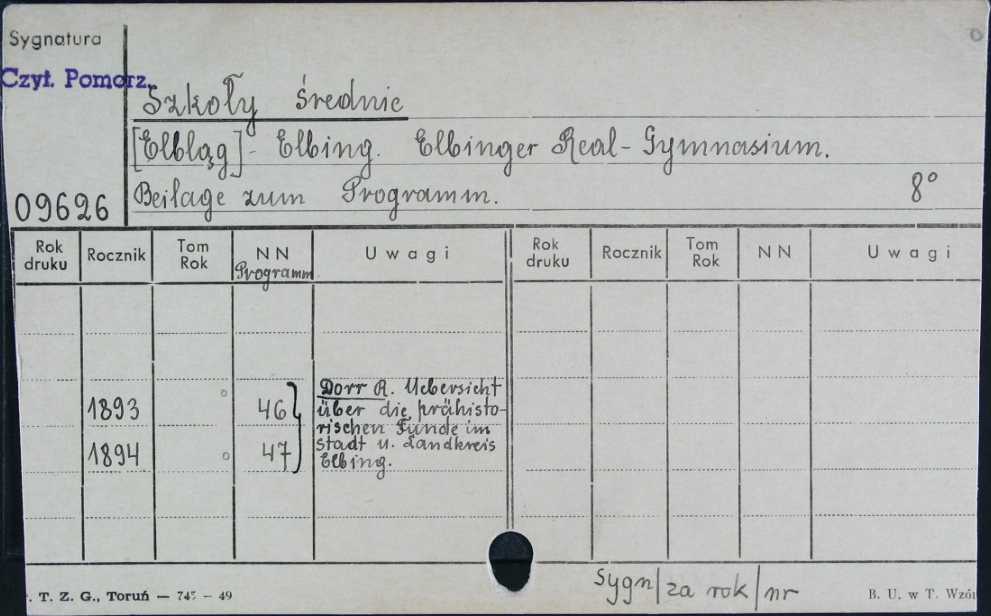 Sygnatura
Czyt. Pomorz.
Szkoły średnie
[Elbląg] - Elbing. Elbinger Real-Gymnasium.
Beilage zum Programm. 8°
09626
Rok druku Rocznik Tom Rok NN Programm Uwagi Rok druku Rocznik Tom Rok NN Uwagi
Dorr R. Uebersicht
1893 46 über die prähisto-
rischen Funde im
1894 47 Stadt u. Landkreis
Elbing.
Sygn/za rok/nr
. T. Z. G., Toruń — 745 — 49
B. U. w T. Wzór